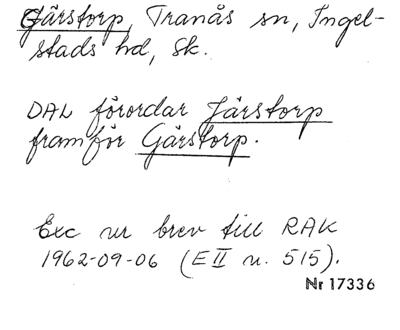 Gärstorp, Tranås sn, Ingel-
stads hd, Sk.
DAL förordar Järstorp
framför Gärstorp.
Exc ur brev till RAK
1962-09-06 (E II u. 515).
Nr 17336